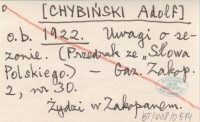 [CHYBIŃSKI Adolf]
o.b. 1922. Uwagi o se-
zonie. (Przedruk ze „Słowa
Polskiego.) — Gaz. Zakop.
2, nr 30.
Żydzi w Zakopanem.